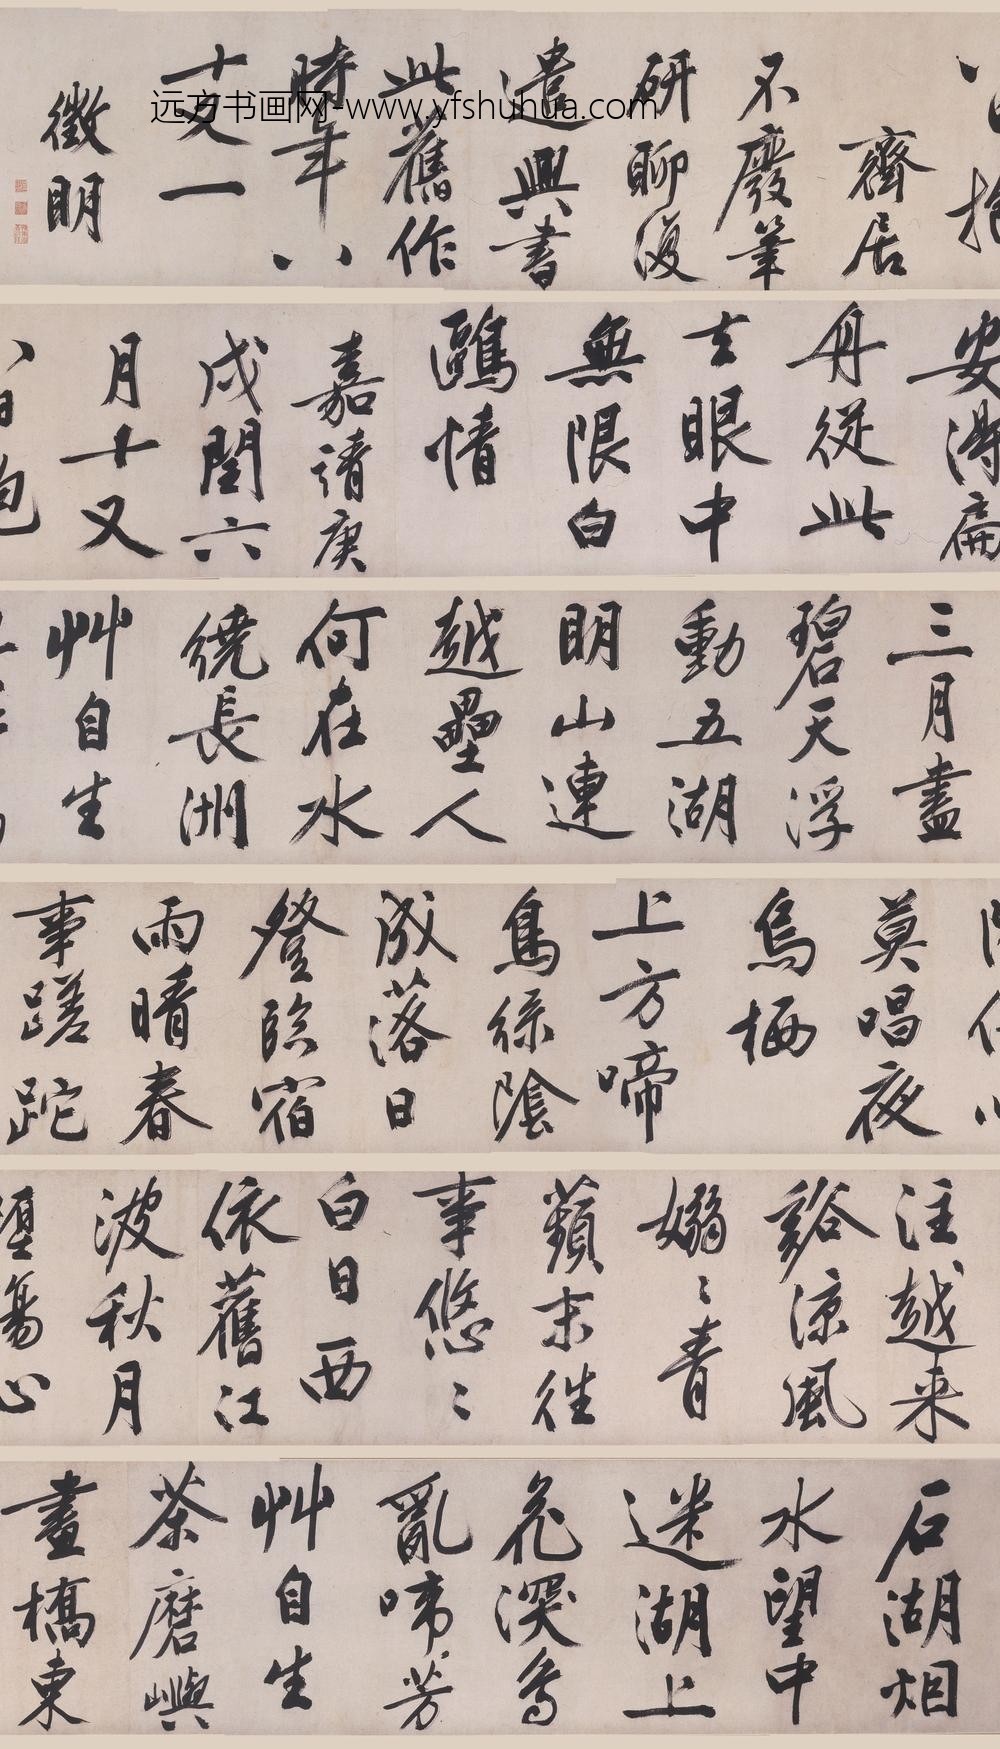 石湖烟
水望中
迷湖上
花深鳥
亂啼芳
艸自生
茶磨嶼
畫橋東
注越来
谿涼風
嫋〻青
蘋末往
事悠〻
白日西
依舊江
波秋月
墮傷心
莫唱夜
烏栖
上方啼
鳥綠陰
成落日
登臨宿
雨晴春
事蹉跎
三月盡
碧天浮
動五湖
明山連
越壘人
何在水
繞長洲
艸自生
安得扁
舟從此
去眼中
無限白
鷗情
嘉靖庚
戌閏六
月十又
八日
齋居
不廢筆
研聊復
遣興書
此舊作
時年八
十又一
徵明
远方书画网-www.yfshuhua.com